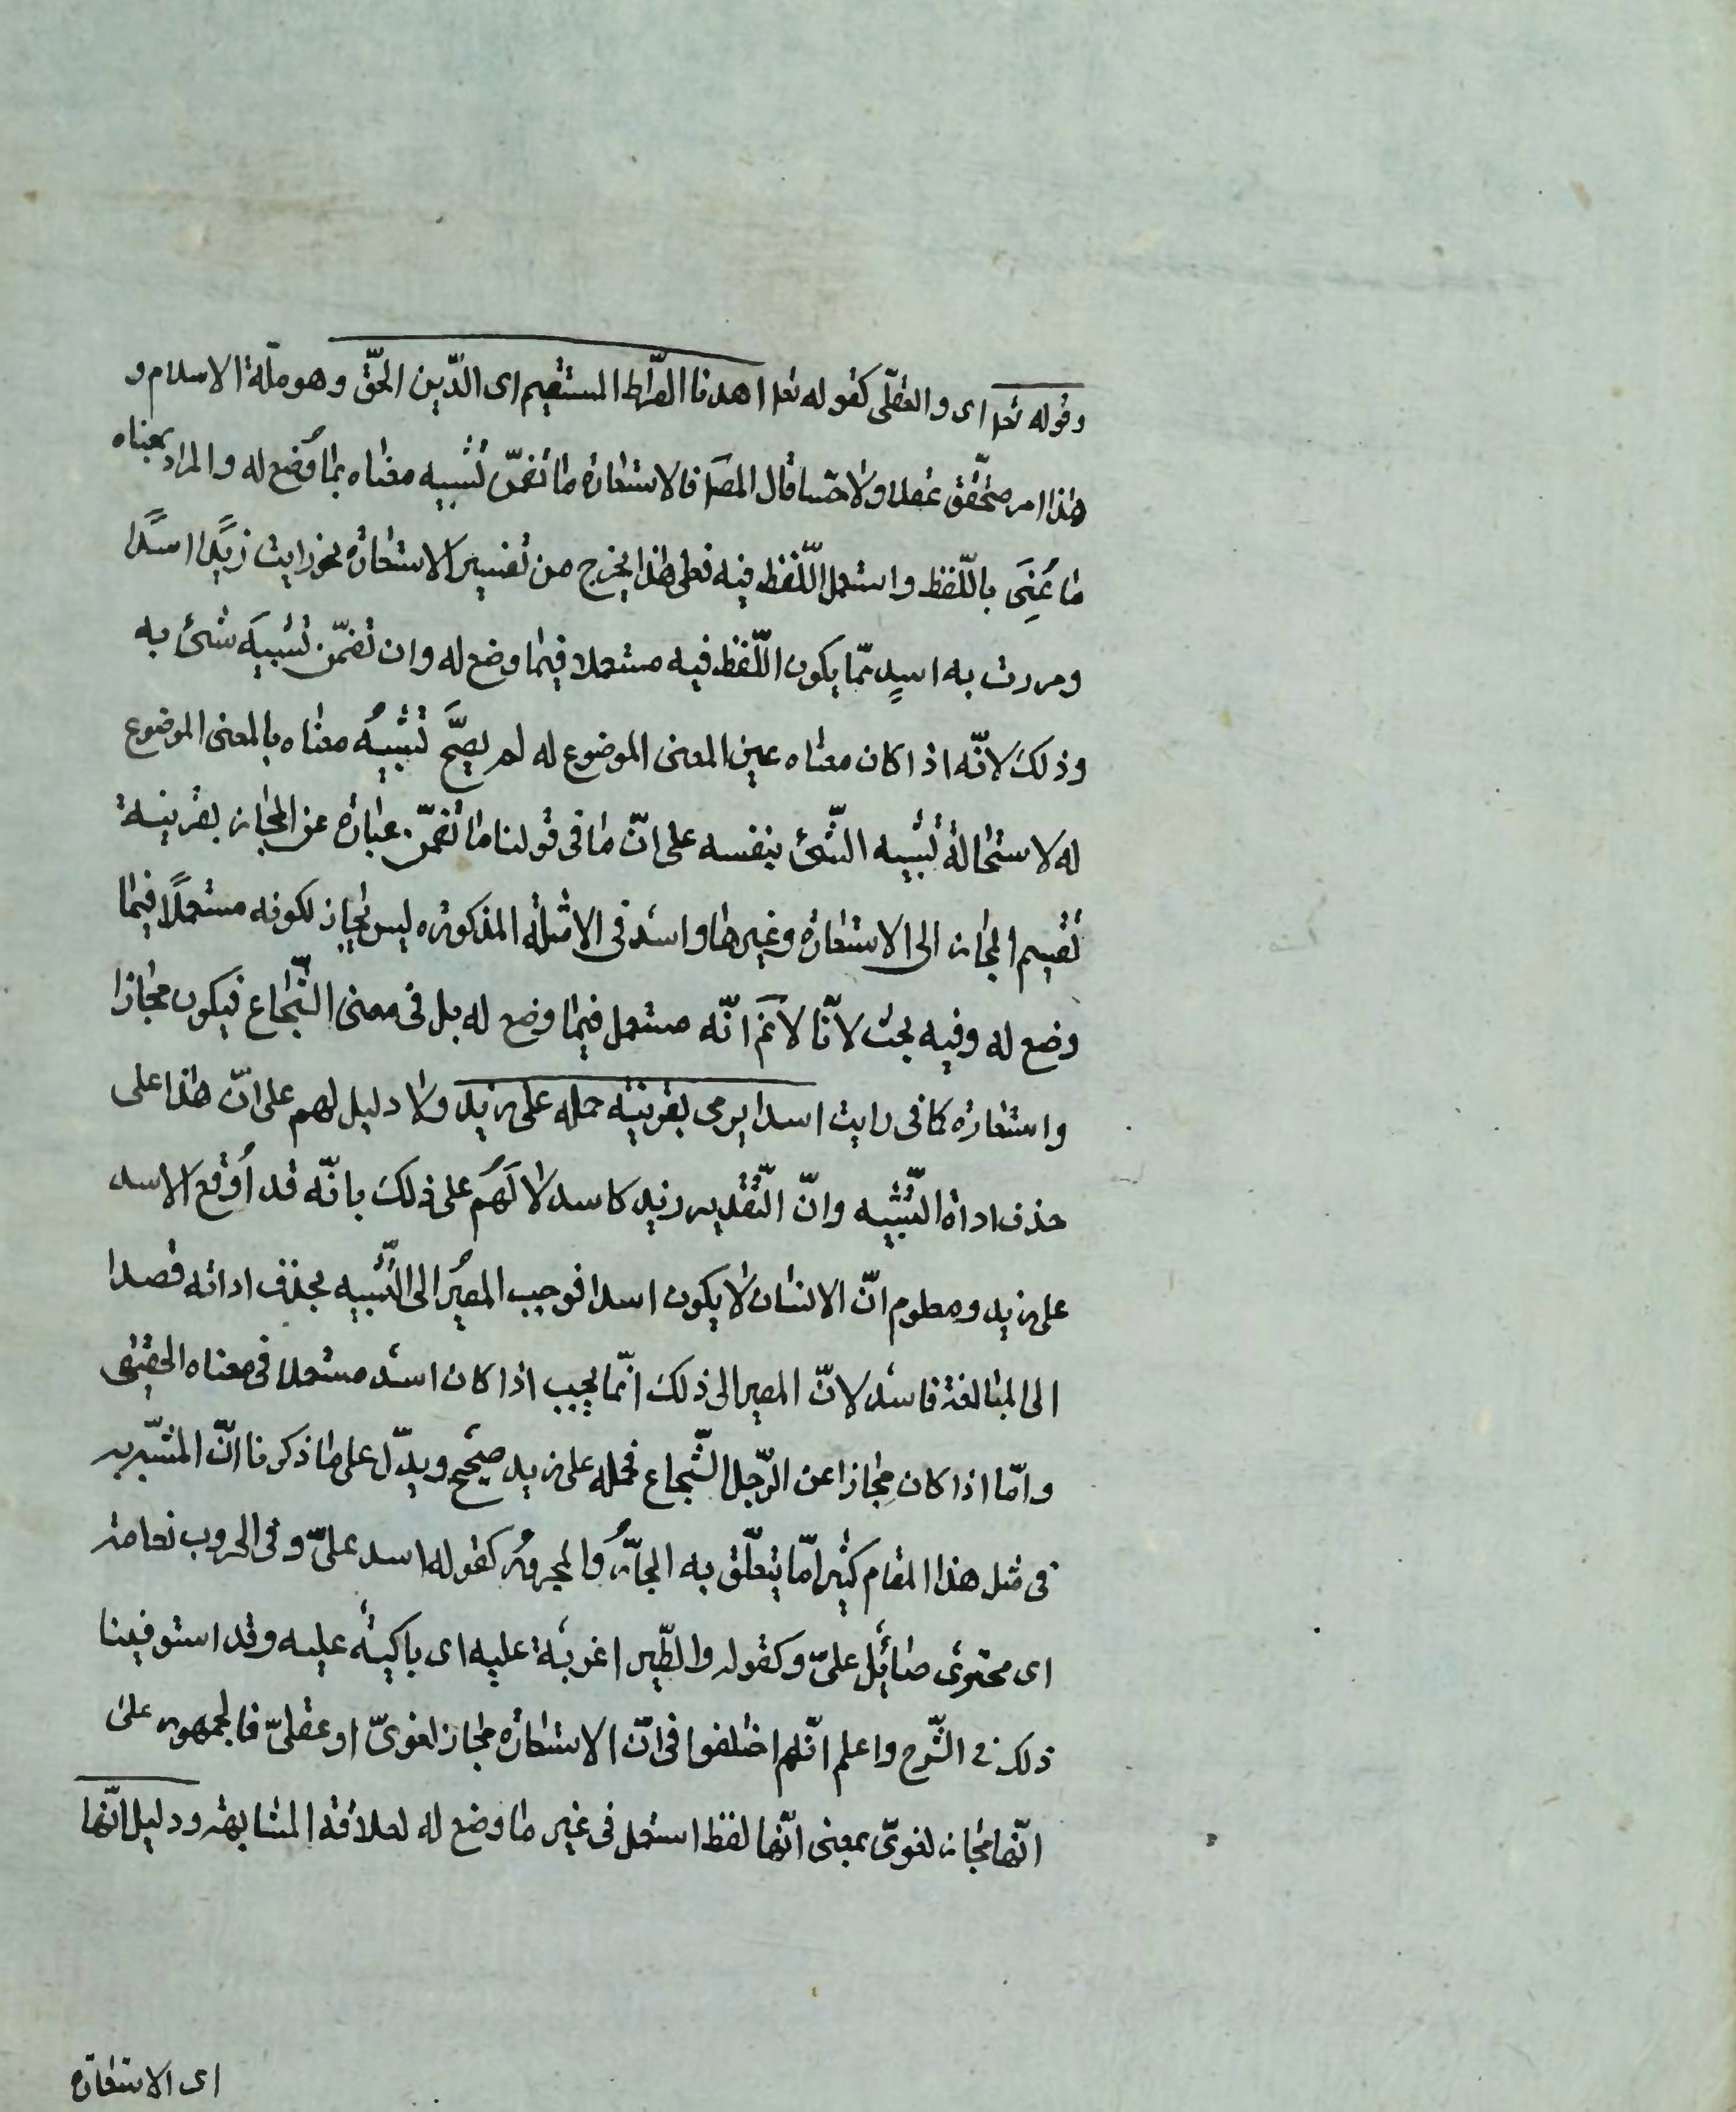 وقوله تعا اى والعقلى كقوله تعا اهدنا الصّراط المستقيم اى الدّين الحقّ وهو ملّة الاسلام و
هذا امر متحقّق عقلا ولا حسّا قال المصَ فالاستعارة ما تضمّن تشبيه معناه بما وُضع له والمراد بمعناه
ما عُنِىَ باللّفظ واستعمل اللّفظ فيه فعلى هذا يخرج من تفسير الاستعارة نحو رايت زيدًا اسدًا
ومررت به اسدٍ ممّا يكون اللّفظ فيه مستعملا فيما وضع له وان تضمّن تشبيهَ شئ به
وذلك لانّه اذا كان معناه عين المعنى الموضوع له لم يصحَّ تشبيهُ معناه بالمعنى الموضوع
له لاستحالة تشبيه الشّئ بنفسه على انّ ما فى قولنا ما تضمّن عبارة عن المجاز بقرينة
تقسيم المجاز الى الاستعارة وغيرها واسد فى الامثلة المذكورة ليس بمجاز لكونه مستعملًا فيما
وضع له وفيه بحث لانّا لانمَ انّه مستعمل فيما وضع له بل فى معنى الشّجاع فيكون مجازا
واستعارة كما فى رايت اسدا يرمى بقرينة حمله على زيد ولا دليل لهم على انّ هذا على
حذف اداة التّشبيه وانّ التّقدير زيد كاسد لا لَهُم على ذلك بانّه قد اُوقع الاسد
على زيد ومعلوم انّ الانسان لا يكون اسدا فوجب المصيُر الى التّشبيه بحذف اداته قصدا
الى المبالغة فاسد لانّ المصير الى ذلك انّما يجب اذا كان اسد مستعملا فى معناه الحقيقى
وامّا اذا كان مجازا عن الرّجل الشّجاع فحمله على زيد صحيح ويدّل على ما ذكرنا انّ المشبّه به
فى مثل هذا المقام كثيرا مّا يتعلّق به الجارُّ والمجرورُ كقوله اسد علىّ وفى الحروب نعامة
اى مجترئ صائل علىّ وكقوله والطّير اغربة عليه اى باكية عليه وقد استوفينا
ذلك فى الشّرح واعلم انّهم اختلفوا فى انّ الاستعارة مجاز لغوىّ او عقلىّ فالجمهور على
انّها مجاز لغوىّ بمعنى انّها لفظ استعمل فى غير ما وضع له لعلاقة المشابهة ودليل انّها
اى الاستعارة